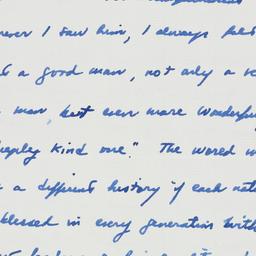 ever I saw him, I always felt
a good man, not only a
man, but even more wonderful
deeply kind one." The world
a different history if each
blessed in every generation with